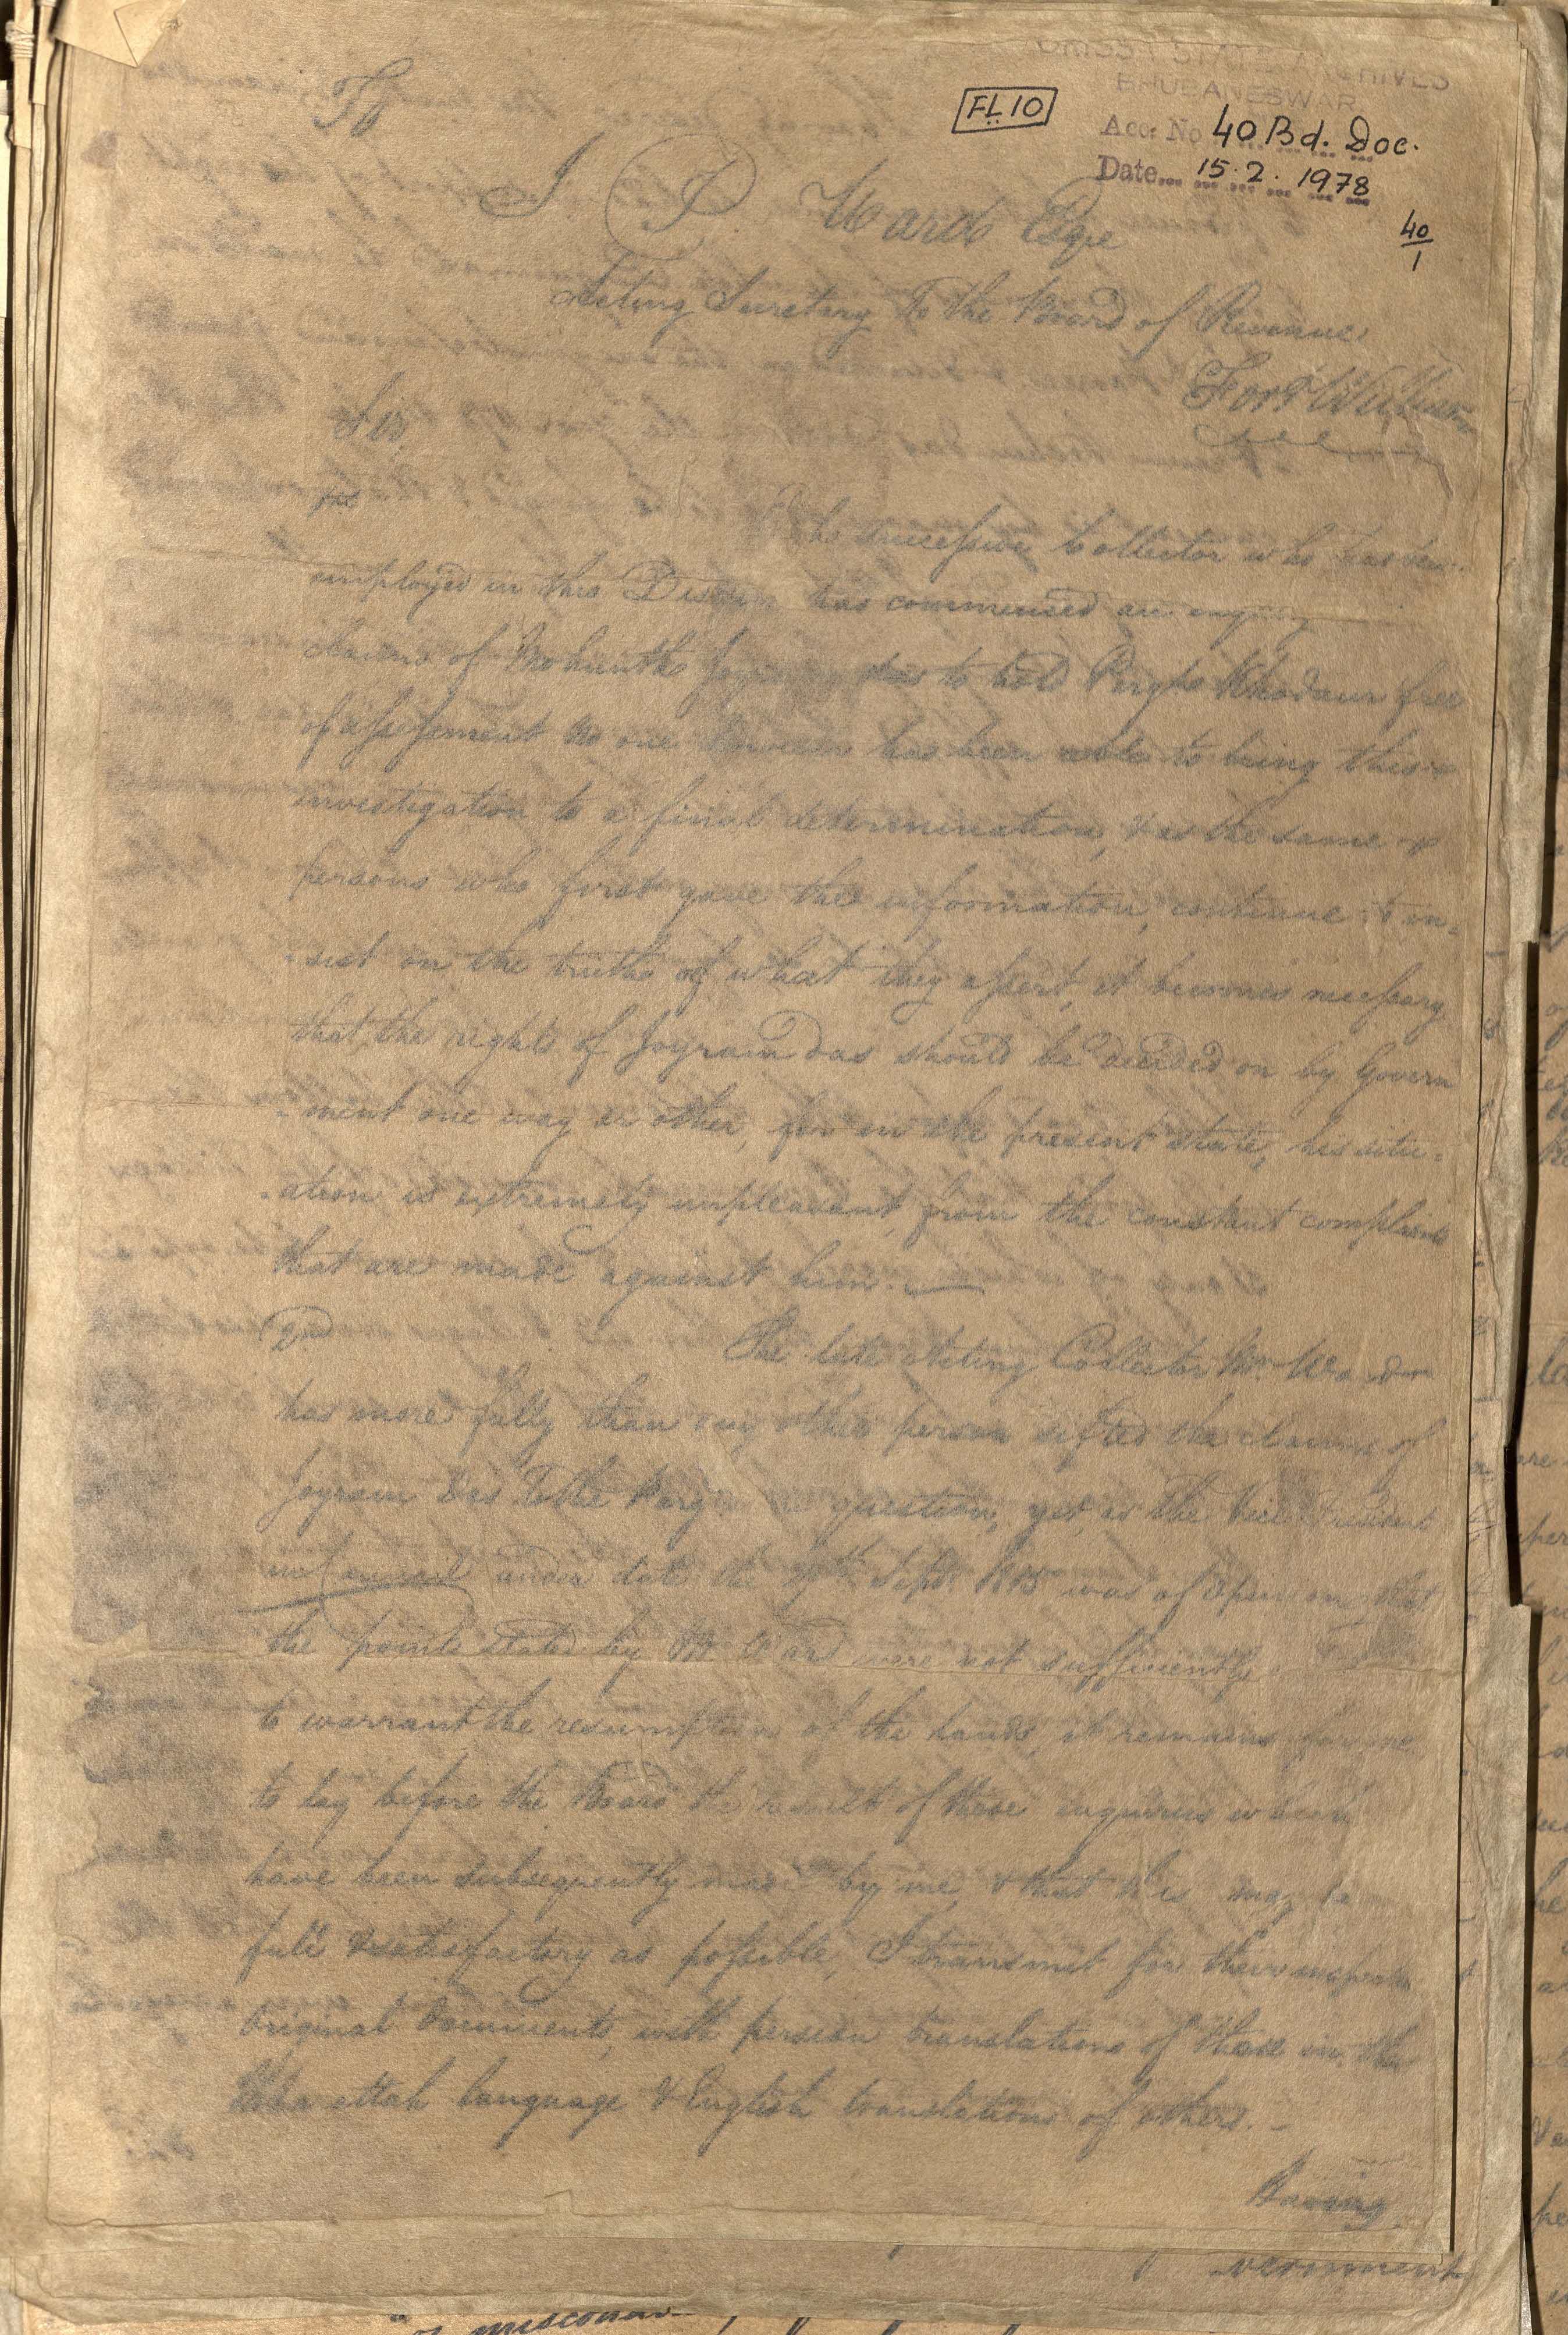 ORISSA STATE ARCHIVES
BHUBANESWAR
FL 10
Acc: No 40 Bd. Doc.
Date 15.2.1978
40/1
To
J. P. Ward Esqre
Acting Secretary To the Board of Revenue
Fort William
Sir
The successive Collector who has been
employed in this District has commenced an enquiry
claims of Mohunth Joyram das to hold Pergh Khodaur free
of assessment no one however has been able to bring this
investigation to a final determination, & as the same
persons who first gave the information, continue to in-
-sist on the truth of what they assert, it becomes necessary
that the right of Joyram das should be decided on by Govern
-ment one way or other, for in the present state, his situ-
-ation is extremely unpleasant, from the constant complaints
that are made against him.
2d
The late Acting Collector Mr. Ward
has more fully than any other person sifted the claims of
Joyram das To the Pergh in question, yet, as the Vice President
in Council under date the Septr. 1815 was of opinion, that
the points stated by Mr Ward were not sufficiently
to warrant the resumption of the lands, it remains for me
to lay before the Board the result of those inquiries which
have been subsequently made by me, & that this may be
full & satisfactory as possible, I transmit for their inspection
original documents, with persian translations of those in the
Maharattah language & English translations of others.
Having
vernment